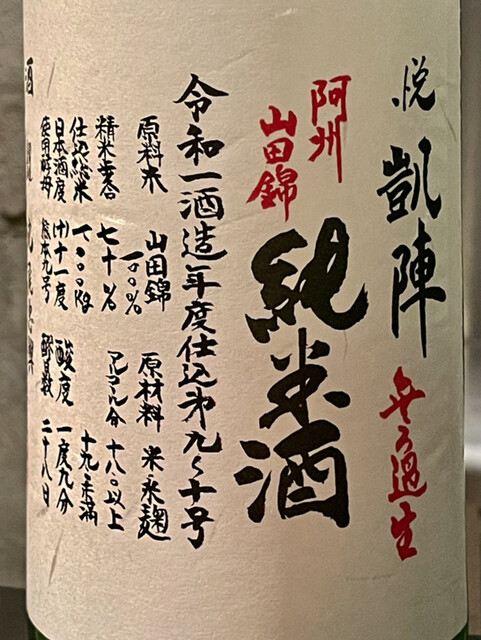 悦 凱陣 無ろ過生
阿州
山田錦
純米酒
令和一酒造年度仕込第九〜十号
原料米 山田錦一〇〇% 原材料 米米麹
精米歩合 七十% アルコール分 十八〇以上十九〇未満
仕込総米 一〇〇〇kg
日本酒度 (+)十一度 酸度 一度九分
使用酵母 熊本九号 醪日数 二十八日
酒